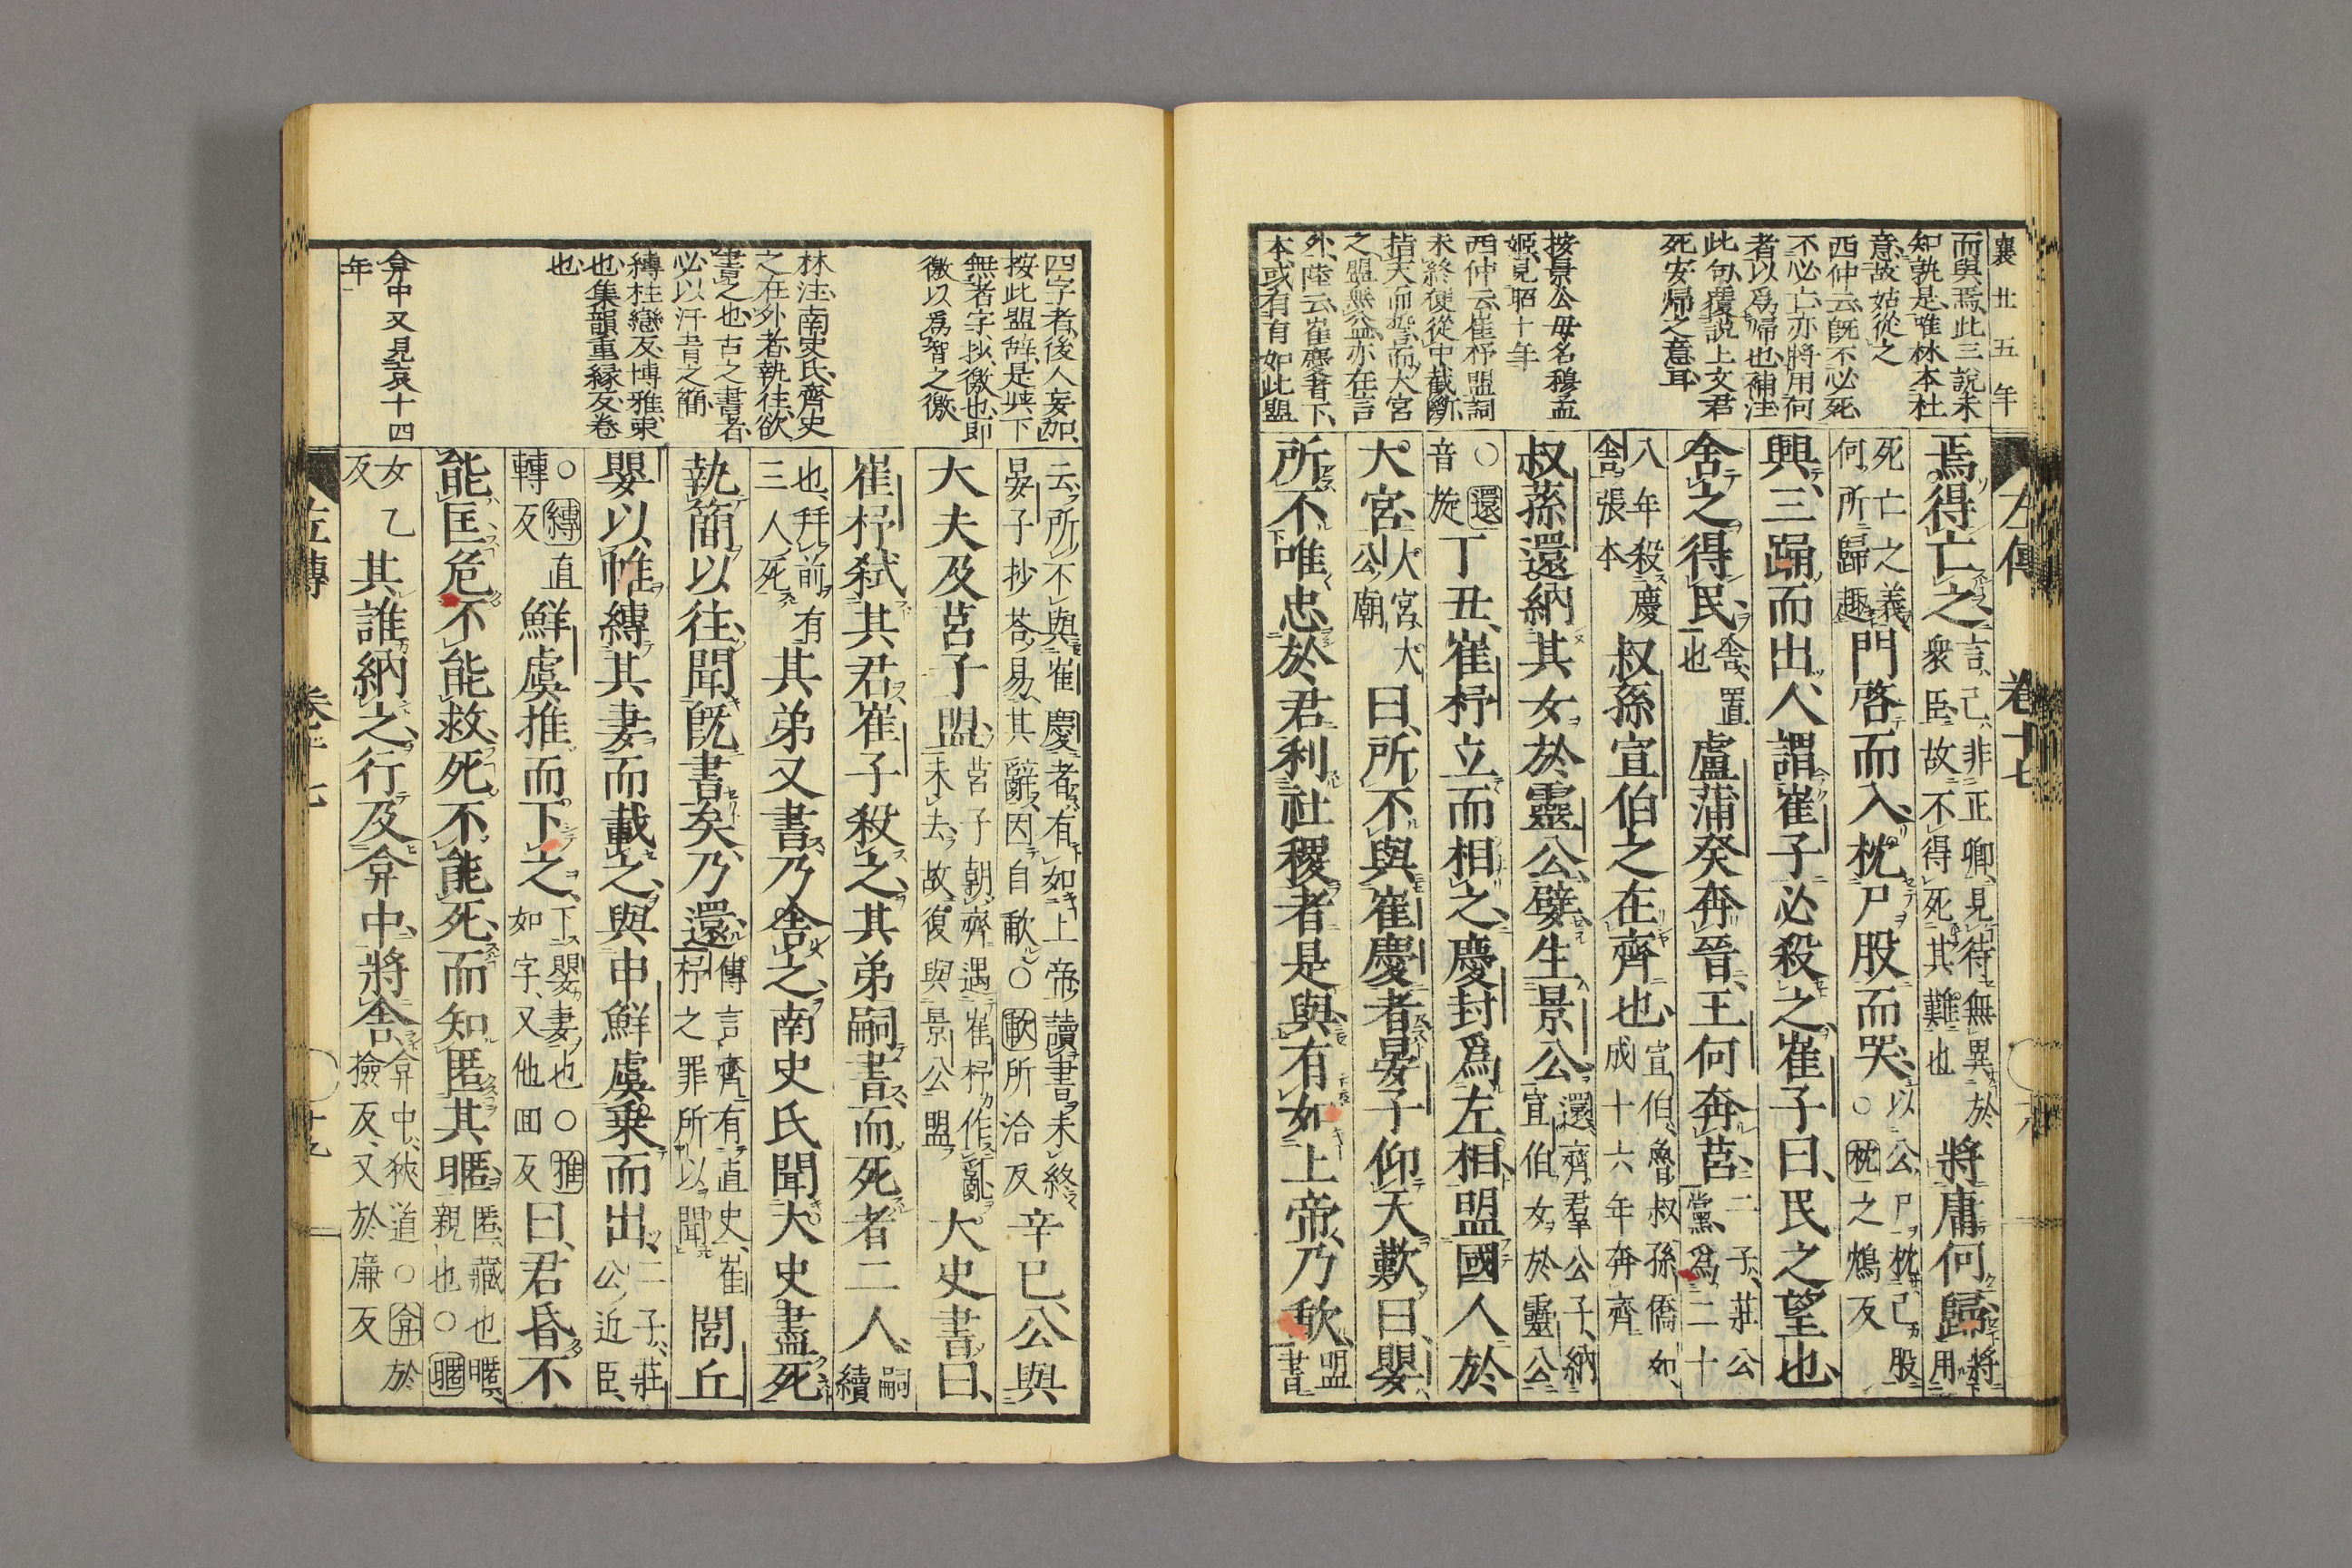 襄廿五年
而與焉、此三說未
知孰是、唯林本杜
意、故姑從之
西仲云、既不必死
不必亡、亦將用何
者以爲歸也、補注
此句、覆說上文君
死安歸之意耳、
按景公母名穆孟
姬、見昭十年
西仲云、崔杼盟詞
未終、便從中截斷、
指天而誓、而大宮
之盟無益、亦在言
外、陸云、崔慶者下、
本或有有如此盟
左傳 卷十七
焉得亡之、言己非正卿、見待無異於衆臣、故不得死其難也將庸何歸、將用
死亡之義、何所歸趣門啓而入、枕尸股而哭、以公尸枕己股○枕之鴆反
興、三踊而出、人謂崔子必殺之、崔子曰、民之望也、
舍之得民、舍、置也盧蒲癸奔晉、王何奔莒、二子、莊公黨、爲二十
八年殺慶舍張本叔孫宣伯之在齊也、宣伯、魯叔孫僑如、成十六年奔齊
叔孫還納其女於靈公、嬖生景公、還、齊羣公子、納宣伯女於靈公
○還音旋丁丑、崔杼立而相之、慶封爲左相、盟國人於
大宮、大宮、大公廟曰、所不與崔慶者、晏子仰天歎曰、嬰
所不唯忠於君利社稷者是與、有如上帝、乃歃、盟書
四字者、後人妄加、
按此盟辭、是挾、下
無者字、抄徼也、即
徼以爲智之徼、
林注、南史氏、齊史
之在外者、執往、欲
書之也、古之書者、
必以汗青之簡、
縛柱戀反、博雅、束
也、集韻重緣反、卷
也、
弇中又見哀十四
年
云、所不與崔慶者、有如上帝、讀書未終、晏子抄荅易其辭、因自歃○歃所洽反辛巳、公與
大夫及莒子盟、莒子朝齊、遇崔杼作亂、未去、故復與景公盟大史書曰、
崔杼弑其君、崔子殺之、其弟嗣書、而死者二人、嗣續
也、幷前有三人死其弟又書、乃舍之、南史氏聞大史盡死
執簡以往、聞既書矣、乃還、傳言齊有直史、崔杼之罪所以聞閭丘
嬰以帷縛其妻而載之、與申鮮虞乘而出、二子、莊公近臣、
○縛直轉反鮮虞推而下之、下嬰妻也○推如字、又他回反曰、君昏不
能匡、危不能救、死不能死、而知匿其暱、匿、藏也、暱、親也○暱
女乙反其誰納之、行及弇中、將舍、弇中、狹道○弇於撿反、又於廉反
左傳 卷十七